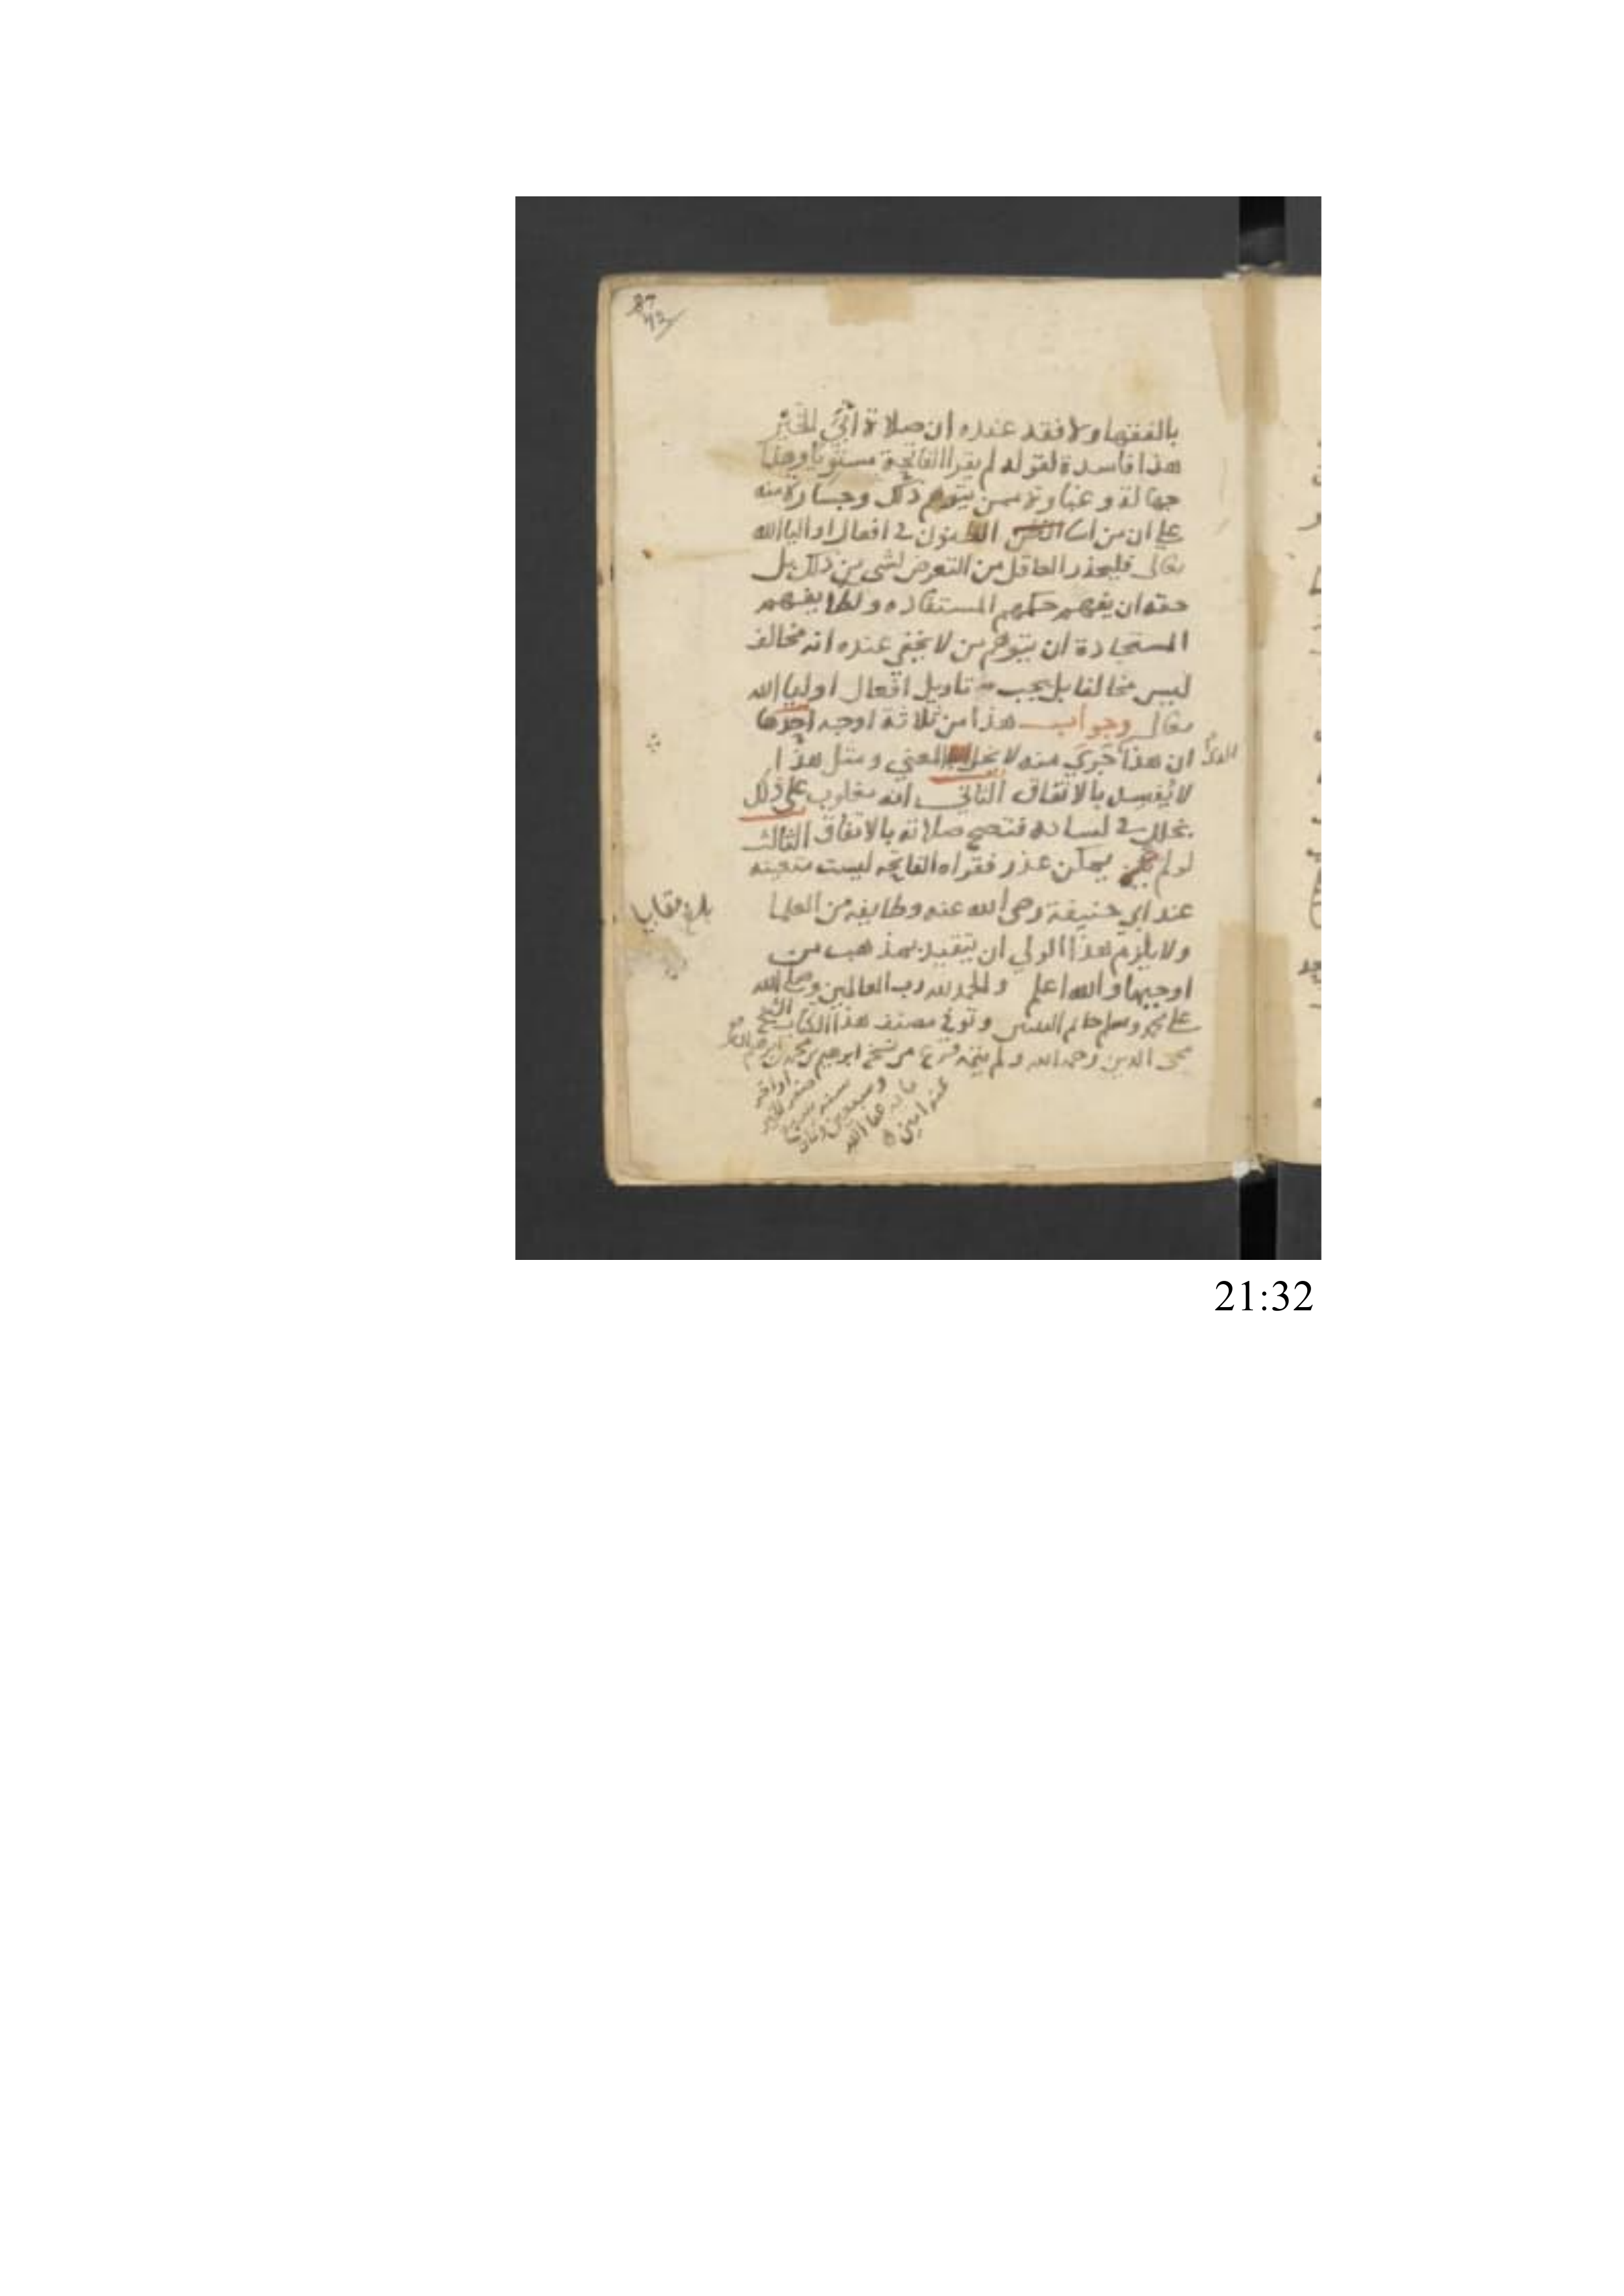 87
42
بالفقها ولا فقد عنده ان صلاة ابي الخير
هذا فاسدة لقوله لم يقرا الفاتحة مستويا وهذا
جهالة وغباوة ممن يتوهم ذلك وجسارة منه
على ان من الظنون في افعال اوليا الله
تعالى فليحذر العاقل من التعرض لشي من ذلك بل
حقه ان يفهم حكمهم المستفاده ولطايفهم
المستجادة ان يتوهم من لا يخفي عنده انه مخالف
ليس مخالفا بل يجب تاويل افعال اوليا الله
تعالى وجواب هذا من ثلاثة اوجه احدها
ان هذا جري منه لا يخل المعني ومثل هذا
لا يفسد بالاتفاق الثاني انه مغلوب على ذلك
بخلل في لسانه فتصح صلاته بالاتفاق الثالث
لو لم يكن عذر فقراه الفاتحه ليست متعينه
عند ابي حنيفة رضى الله عنه وطايفه من العلما
بلغ مقابلة
ولا يلزم هذا الولي ان يتقيد بمذهب من
اوجبها والله اعلم والحمد لله رب العالمين وصلى الله
على محمد وسلم خاتم النبيين وتوفي مصنف هذا الكتاب الشيخ
محي الدين رحمه الله ولم يتمه فرغ من نسخه ابراهيم بن محمد
اواخر
صفر
سنه
وسبعين
عفا الله
عنه امين
21:32